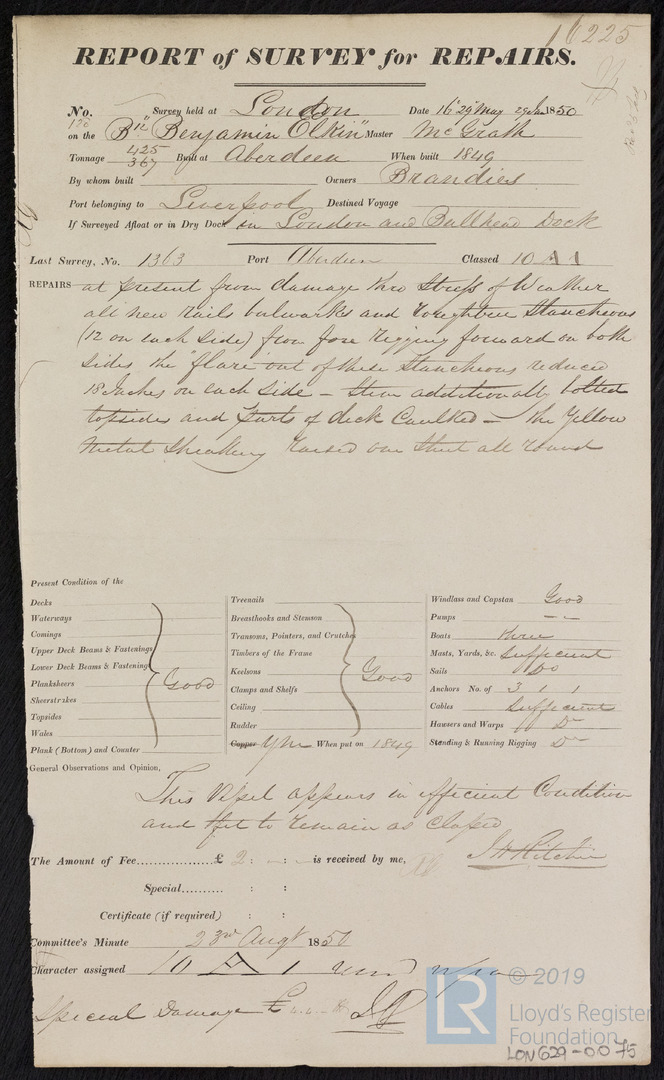 16225
REPORT of SURVEY for REPAIRS.
No. Survey held at London Date 16 & 29 May 1850
on the Benjamin Elkin" Master McGrath
Tonnage 425 367 Built at Aberdeen When built 1849
By whom built Owners Brandies
Port belonging to Liverpool Destined Voyage
If Surveyed Afloat or in Dry Dock in London and Bullhead Dock
Last Survey, No. 1363 Port Aberdeen Classed 10 A 1
REPAIRS at present from damage thro Stress of Weather
all new rails bulwarks and Roughtree Stancheons
(12 on each Side) from fore Rigging forward on both
Sides, the "flare" out of these Stancheons reduced
18 Inches on each Side – Stem additionally bolted
topsides and parts of deck Caulked – the Yellow
Metal Sheathing raised one Sheet all round
Present Condition of the
Decks
Waterways
Comings
Upper Deck Beams & Fastenings
Lower Deck Beams & Fastening
Planksheers Good
Sheerstrakes
Topsides
Wales
Plank (Bottom) and Counter
Treenails
Breasthooks and Stemson
Transoms, Pointers, and Crutches
Timbers of the Frame
Keelsons Good
Clamps and Shelfs
Ceiling
Rudder
Copper YM When put on 1849
Windlass and Capstan Good
Pumps – –
Boats three
Masts, Yards, &c. Sufficient
Sails Do
Anchors No. of 3 1 1
Cables Sufficient
Hawsers and Warps Do
Standing & Running Rigging Do
General Observations and Opinion,
This Vessel appears in efficient Condition
and fit to remain as Classed
The Amount of Fee £ 2 : – : – is received by me,
Special : :
Certificate (if required) : :
Committee's Minute 23rd Augt 1850
Character assigned 10 A 1
Special Damage £
© 2019
LR
Lloyd's Register
Foundation
LON629-0075